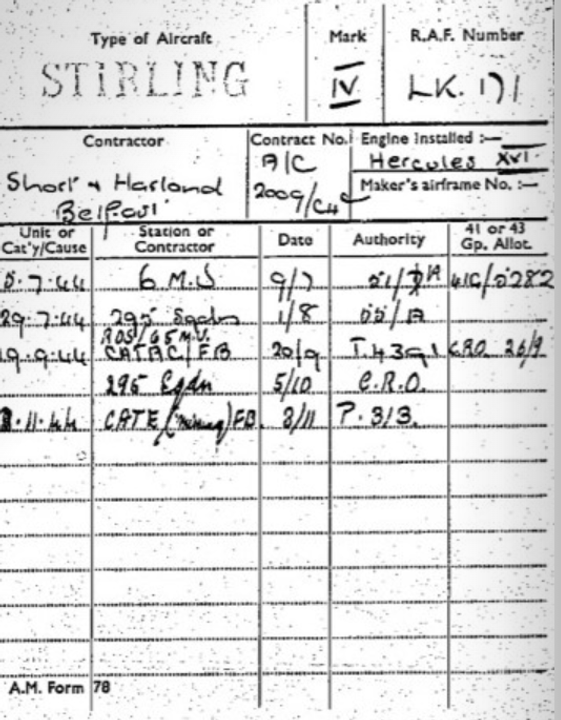 Type of Aircraft Mark R.A.F. Number
STIRLING IV LK.171
Contractor Contract No. Engine Installed :—
A/C Hercules XVI
Short & Harland 2009/C4 Maker's airframe No. :—
Belfast
Unit or Cat'y/Cause Station or Contractor Date Authority 41 or 43 Gp. Allot.
5.7.44 6 M.U 9/7 41G/5282
29.7.44 295 Sqdn 1/8 05/A
ROS/65 M.U.
19.9.44 CATAC/FB 20/9 T.4391 C.R.O. 26/9
295 Sqdn 5/10 C.R.O.
3.11.44 CATE (missing) FB 3/11 P.313.
A.M. Form 78